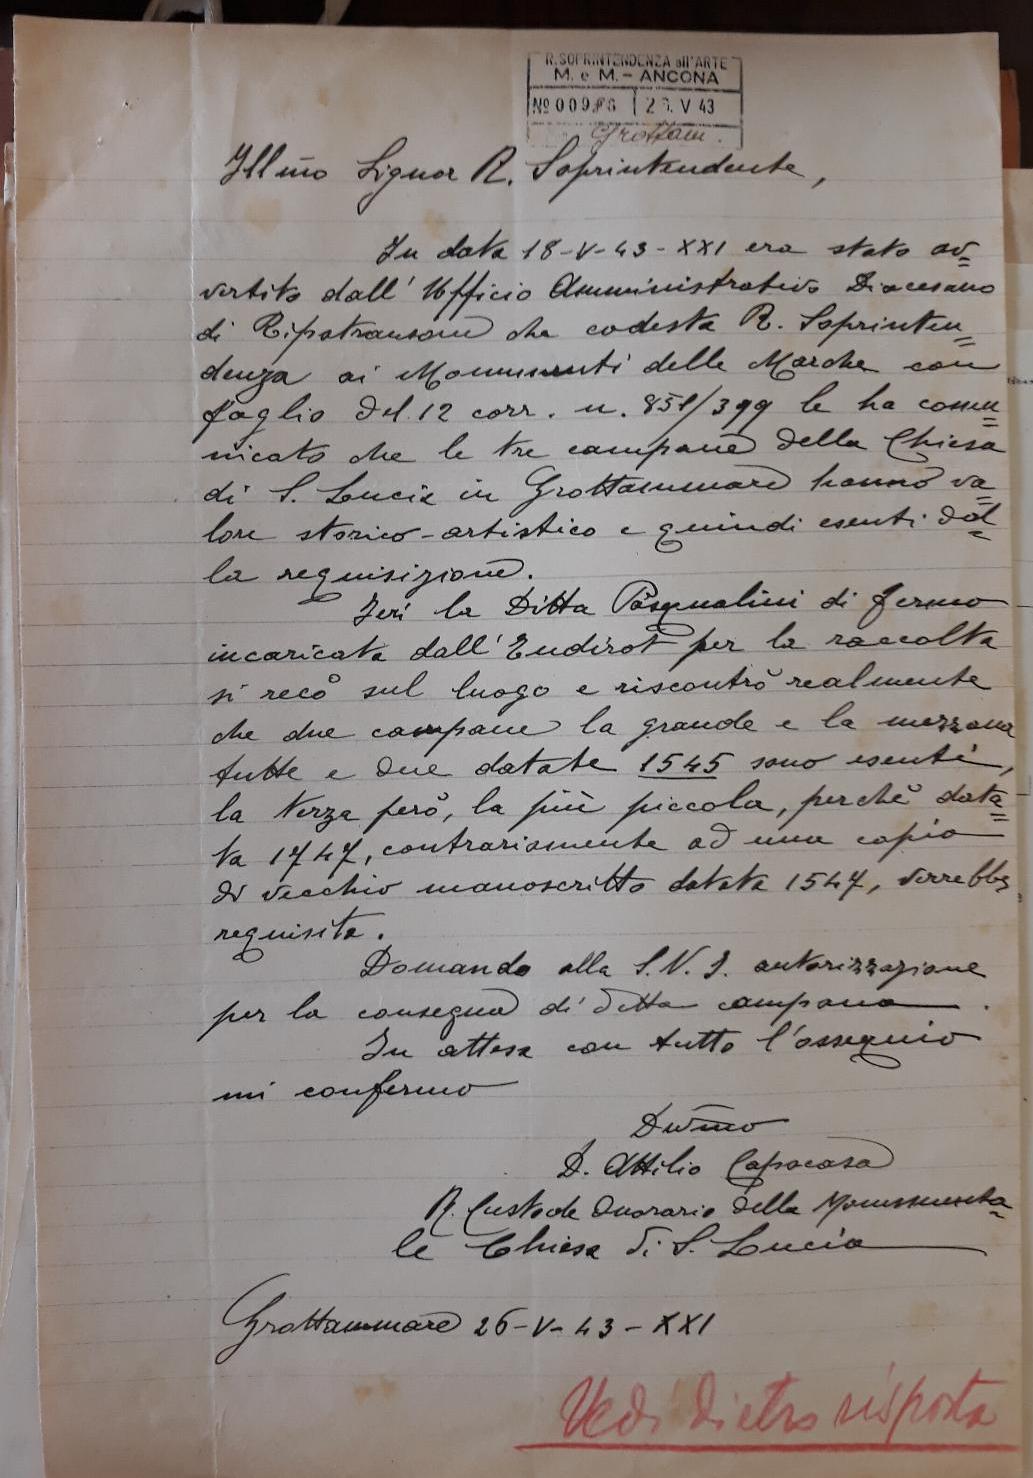 R. SOPRINTENDENZA all'ARTE
M. e M. - ANCONA
No V 43
Grottam.
Ill mo Signor R. Soprintendente,
In data 18-V-43-XXI era stato av=
vertito dall'Ufficio Amministrativo Diocesano
di Ripatransone che codesta R. Soprinten=
denza ai Monumenti delle Marche con
foglio del 12 corr. n. 851/399 le ha comu=
nicato che le tre campane della Chiesa
di S. Lucia in Grottammare hanno va=
lore storico-artistico e quindi esenti dal=
la requisizione.
Ieri la Ditta Pasqualini di Fermo
incaricata dall'Endirot per la raccolta
si recò sul luogo e riscontrò realmente
che due campane la grande e la mezzana
tutte e due datate 1545 sono esenti,
la terza però, la più piccola, perchè data=
ta 1747, contrariamente ad una copia
di vecchio manoscritto datata 1547, verrebbe
requisita.
Domando alla S.V.I. autorizzazione
per la consegna di detta campana.
In attesa con tutto l'ossequio
mi confermo
Dev mo
D. Attilio Capocasa
R. Custode Onorario della Monumenta=
le Chiesa di S. Lucia
Grottammare 26-V-43-XXI
Vedi dietro risposta